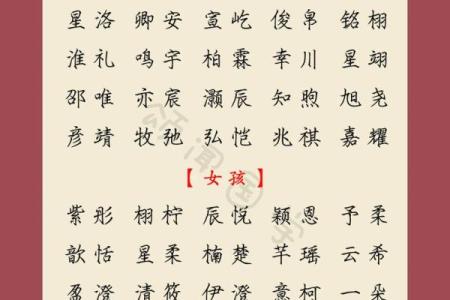 星洛 卿安 宣屹 俊帛 铭栩
淮礼 鸣宇 柏霖 幸川 星翊
邵唯 亦宸 灏辰 知煦 旭尧
彦靖 牧弛 弘恺 兆祺 嘉耀
【女孩】
紫彤 栩柠 辰悦 颖恩 予柔
歆恬 星柔 楠楚 芊瑶 云希
盈澄 清筱 伊澄 意柯 一朵
颂闻国学